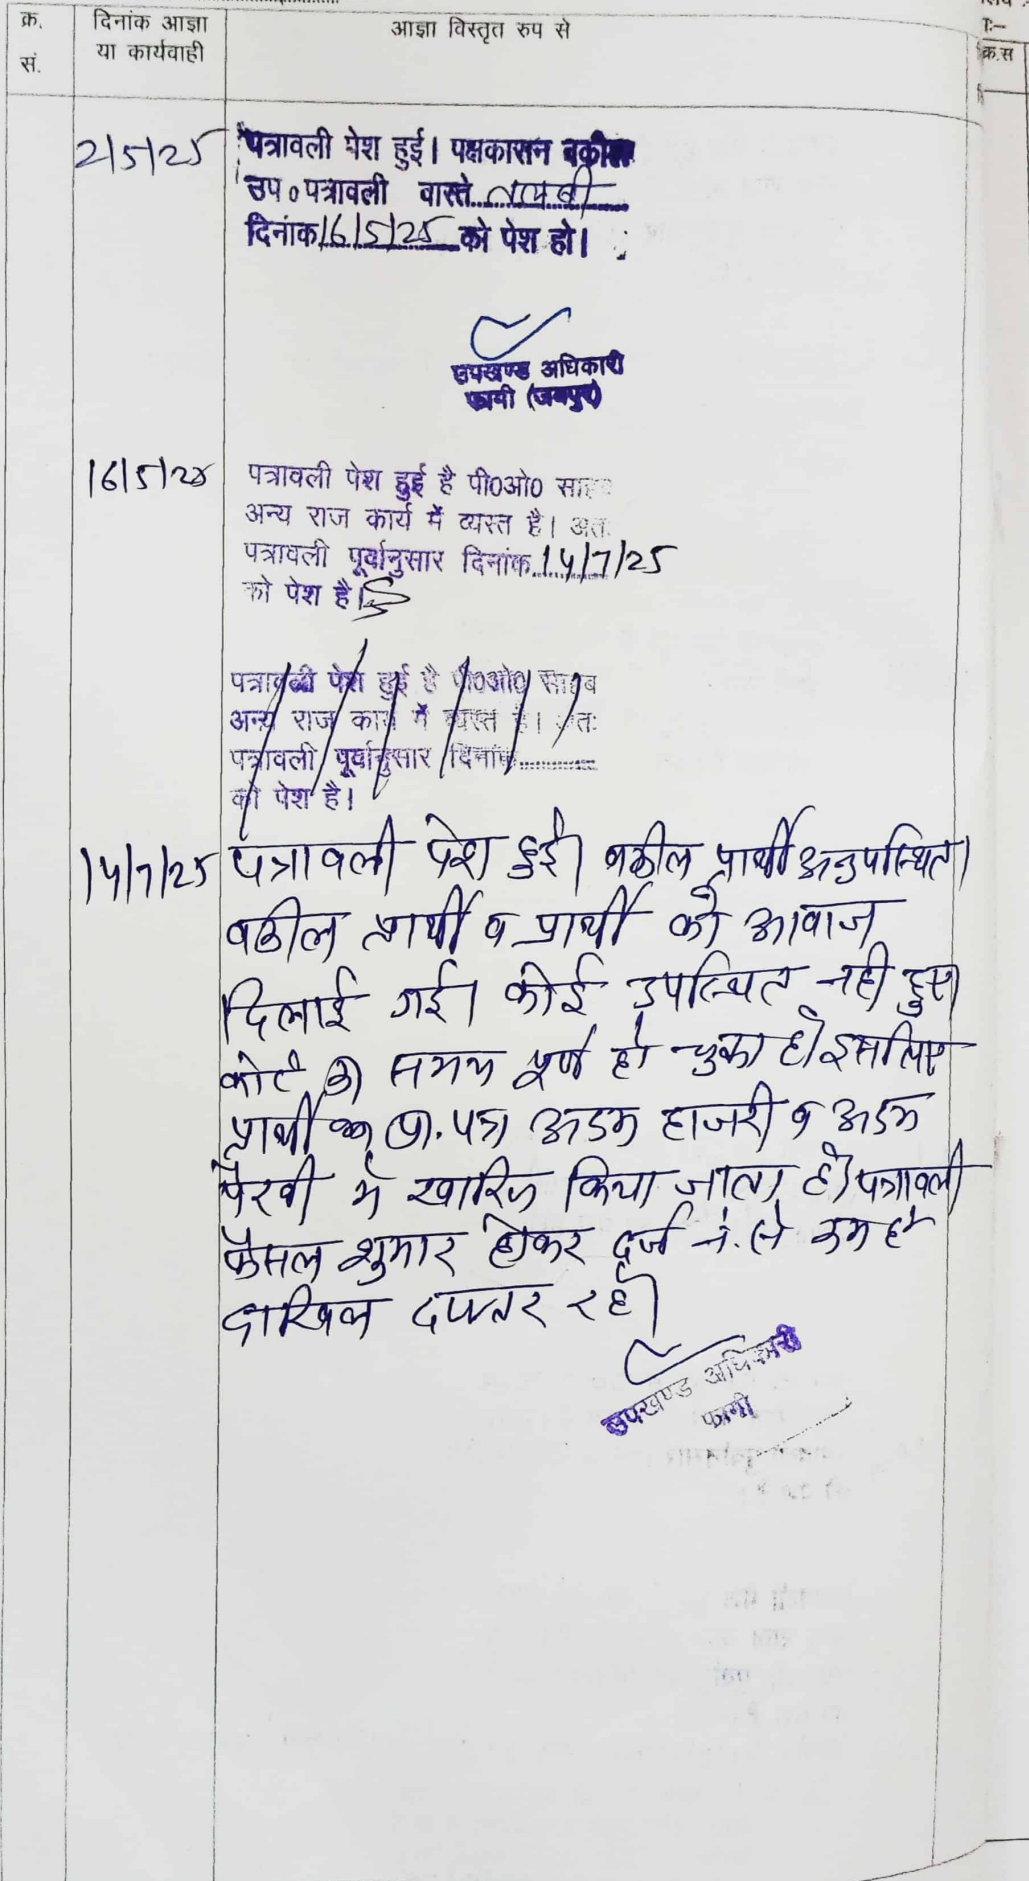 क्र.
सं.
दिनांक आज्ञा
या कार्यवाही
आज्ञा विस्तृत रुप से
क्र.स
2/5/25
पत्रावली पेश हुई। पक्षकारान वकील
उप० पत्रावली वास्ते तलबी
दिनांक 16/5/25 को पेश हो।
उपखण्ड अधिकारी
फागी (जयपुर)
16/5/25
पत्रावली पेश हुई है पी0ओ0 साहब
अन्य राज कार्य में व्यस्त है। अतः
पत्रावली पूर्वानुसार दिनांक 14/7/25
को पेश है।
पत्रावली पेश हुई है पी0ओ0 साहब
अन्य राज कार्य में व्यस्त है। अतः
पत्रावली पूर्वानुसार दिनांक............
को पेश है।
14/7/25
पत्रावली पेश हुई। वकील प्रार्थी अनुपस्थित।
वकील प्रार्थी व प्रार्थी को आवाज
दिलाई गई। कोई उपस्थित नही हुए।
कोर्ट का समय पूर्ण हो चुका है। इसलिए
प्रार्थी का प्रा. पत्र अदम हाजरी व अदम
पैरवी में खारिज किया जाता है। पत्रावली
फैसल शुमार होकर दर्ज नं. से कम हो
दाखिल दफ्तर रहे।
उपखण्ड अधिकारी
फागी